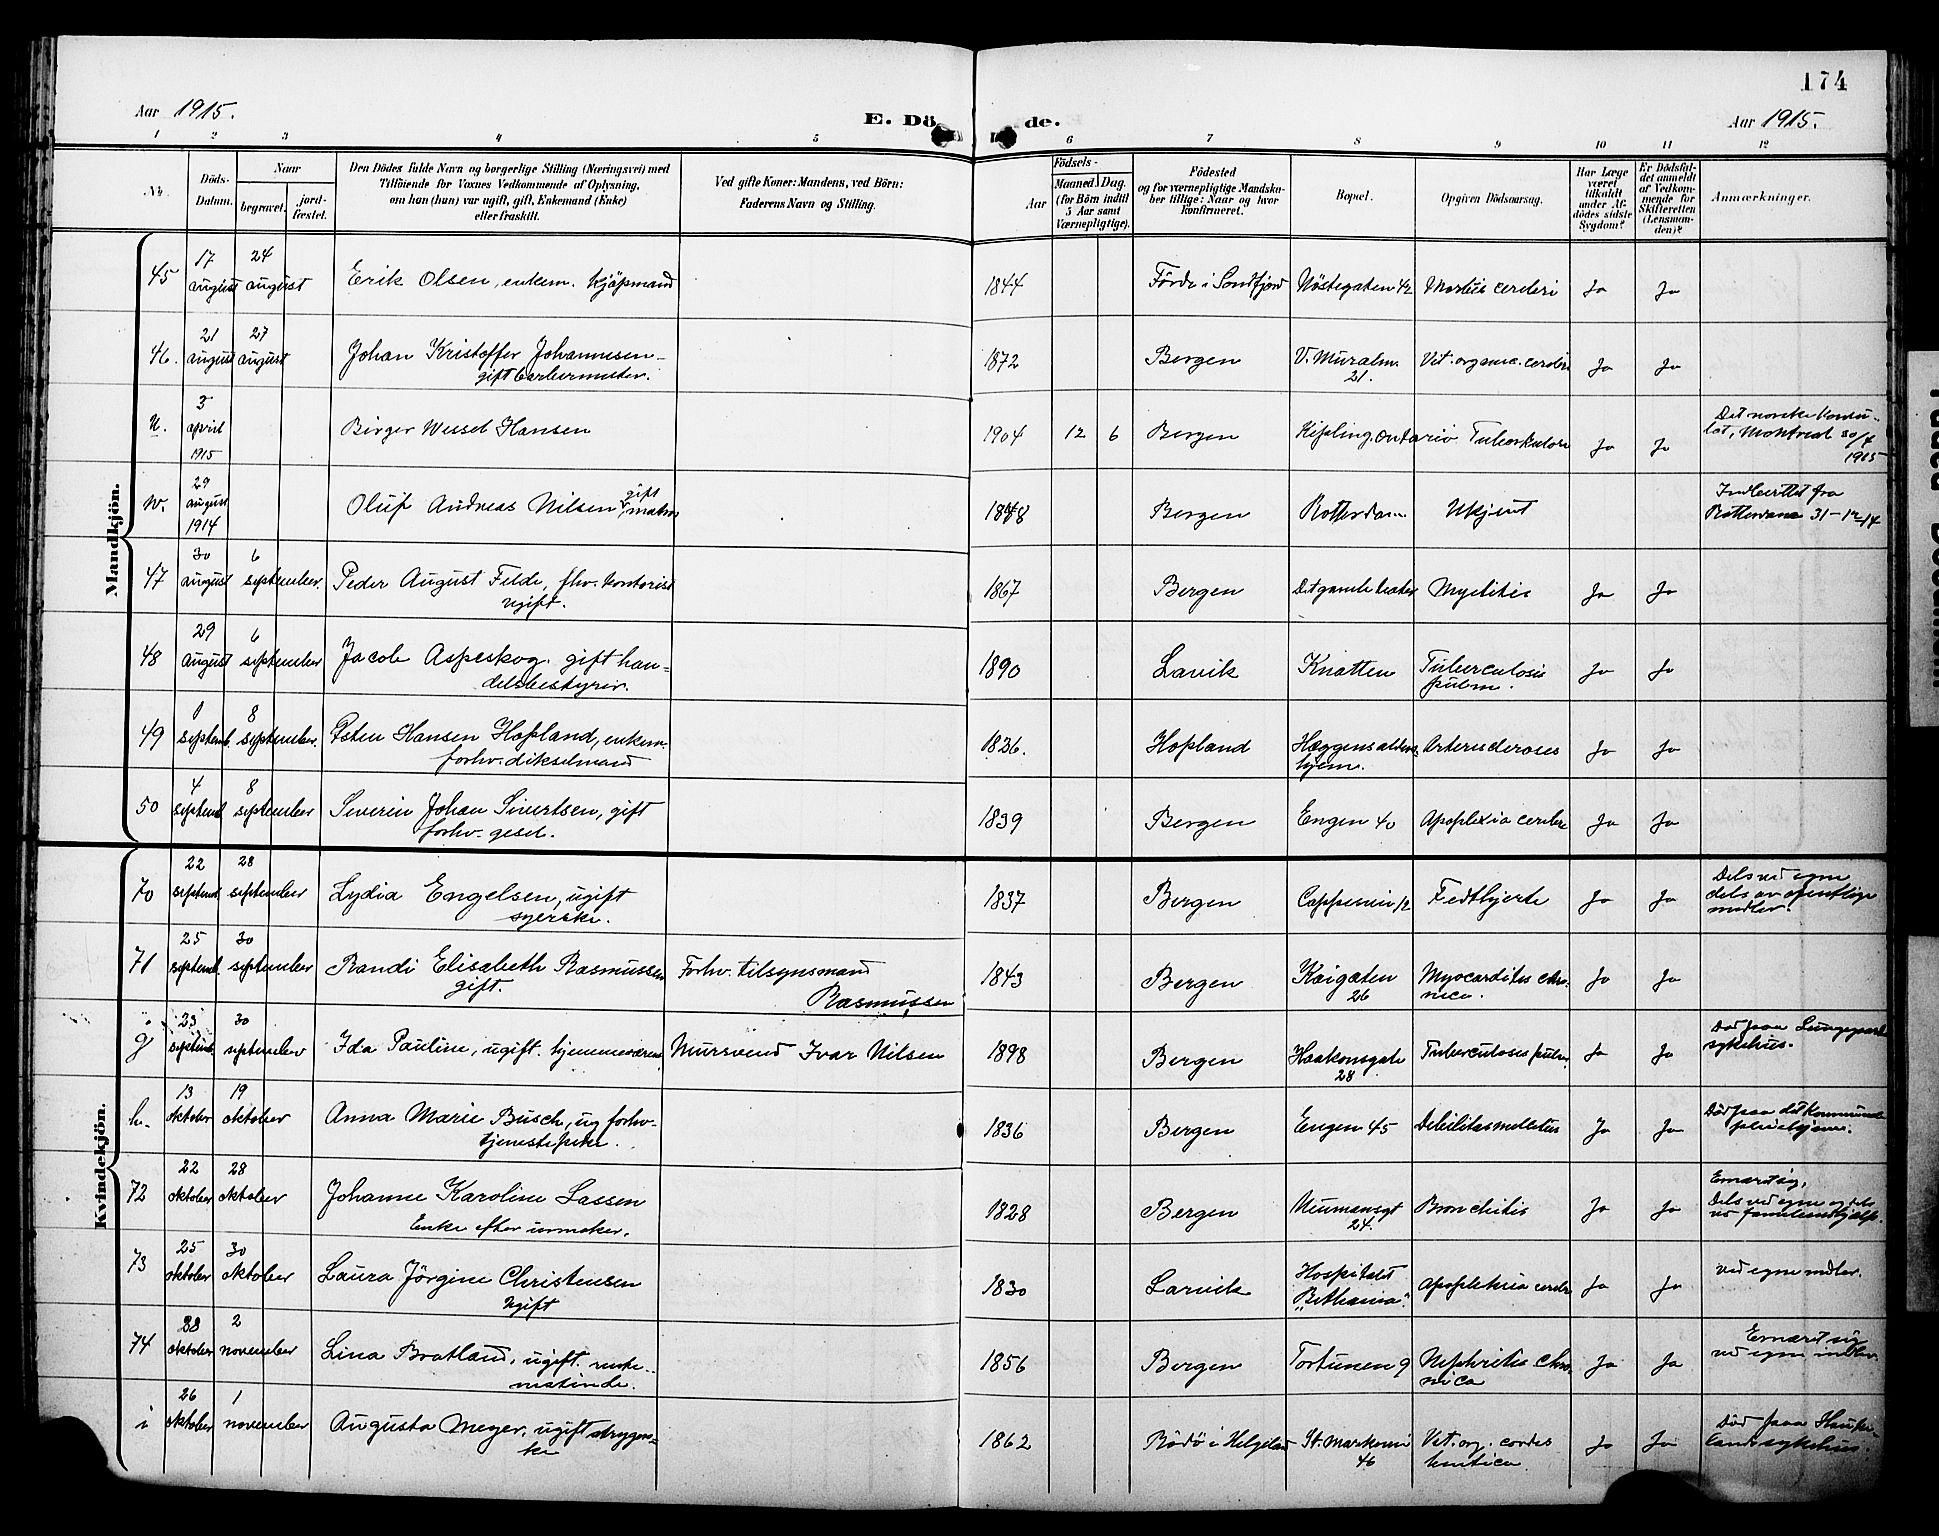 174
Aar 1915.
E. Dö
de.
Aar 1915.
1 2 3 4 5 6 7 8 9 10 11 12
No.
Döds-
Datum.
Naar
begravet.
jord-
fæstet.
Den Dödes fulde Navn og borgerlige Stilling (Næringsvei) med
Tilföiende for Voxnes Vedkommende af Oplysning,
om han (hun) var ugift, gift, Enkemand (Enke)
eller fraskilt.
Ved gifte Koner: Mandens, ved Börn:
Faderens Navn og Stilling.
Födsels-
Aar
Maaned. Dag.
(for Börn indtil
5 Aar samt
Værnepligtige).
Födested
og for værnepligtige Mandska-
ber tillige: Naar og hvor
konfirmeret.
Bopæl.
Opgiven Dödsaarsag.
Har Læge
været
tilkaldt
under Af-
dödes sidste
Sygdom?
Er Dödsfal-
det anmeldt
af Vedkom-
mende for
Skifteretten
(Lensman-
den)?
Anmærkninger.
Mandkjön.
45 17 august 24 august Erik Olsen, enkem. kjöpmand 1844 Förde i Söndfjord Nöstegaten 42 cerebri Ja Ja
46. 21 august 27 august Johan Kristoffer Johannesen
gift barbermester. 1872 Bergen V. Muralm.
21. Vit. organic. cerebri Ja Ja
u. 3 april 1915 Birger Wessel Hansen 1904 12 6 Bergen Kipling, Ontario Tuberkulose Ja Ja Det norske konsu-
lat, Montreal 30/4
1915
w. 29 august 1914 Oluf Andreas Nilsen, gift matros 1878 Bergen Rotterdam Ukjent Indberettet fra
Rotterdam 31-12-14
47 30 august 6 september. Peder August Felde, fhv. kontorist
ugift. 1867 Bergen Det gamle teater Myelitis Ja Ja
48 29 august 6 september Jacob Aspeskog. gift han-
delsbestyrer. 1890 Lavik Knatten Tuberculosis
pulm. Ja Ja
49 1 septemb. 8 september. Östen Hansen Hopland, enkem.
forhv. dikselmand 1826. Hopland Hæggens alders
hjem. Arteriosclerosis Ja Ja
50 4 septemb 8 september Severin Johan Sivertsen, gift
forhv. gesel. 1839 Bergen Engen 40 Apoplexia cerebri Ja Ja
Kvindekjön.
70 22 septemb. 28 september Lydia Engelsen, ugift
syerske. 1837 Bergen 12 Fedthjerte Ja Ja Dels ved egne
dels av offentlige
midler.
71 25 septemb. 30 september Randi Elisabeth Rasmussen
gift. Forhv. tilsynsmand
Rasmussen 1843 Bergen Kaigaten
26 Myocarditis chro-
nica. Ja Ja
g 23 septemb. 30 september Ida Pauline, ugift. hjemmeværende Mursvend Ivar Nilsen 1898 Bergen Haakonsgate
28 Tuberculosis pulm. Ja Ja Död paa Lungegaards
sykehus.
h. 13 oktober 19 oktober Anna Marie Busch, ug forhv.
tjenestepike. 1836 Bergen Engen 45 Ja Ja Död paa det kommunale
pleiehjem.
72 22 oktober 28 oktober Johanne Karoline Lassen
Enke efter urmaker. 1828 Bergen Neumansgt
24. Bronchitis Ja Ja Ernært sig,
Dels ved egne og dels
ved familiens hjælp.
73 25 oktober 30 oktober Laura Jörgine Christensen
Ugift 1830 Larvik Hospitalet
"Bethania". apoplektia cerebri Ja Ja ved egne midler.
74 28 oktober 2 november Lina Bratland, ugift.
1856 Bergen Torturmen 9 Nephritis chro-
nica Ja Ja Ernært sig
ved egne midler.
i 26 oktober 1 november Augusta Meyer, ugift strygers-
ke 1862 Rödö i Helgeland St. Markevei
46 Vit. org. cordis
Ja Ja Död paa Hauke-
lands sykehus.